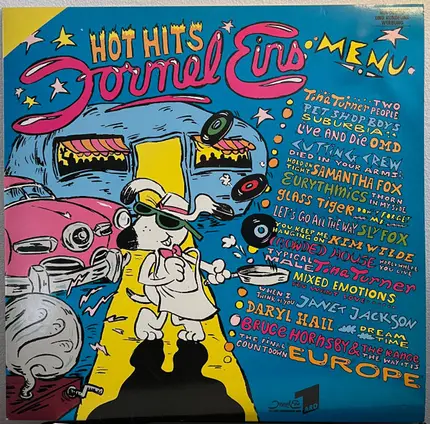 HOT HITS
Formel Eins
MENU
Tina Turner TWO
PEOPLE
PET SHOP BOYS
SUBURBIA
Live And Die OMD
CUTTING CREW
DIED IN YOUR ARMS
HOLD ME
TIGHT SAMANTHA FOX
EURYTHMICS THORN
IN MY SIDE
GLASS TIGER DON'T FORGET
LET'S GO ALL THE WAY SLY FOX
YOU KEEP ME
HANGING ON KIM WILDE
CROWDED HOUSE
TYPICAL
MALE Tina Turner
MIXED EMOTIONS
WHEN I
THINK OF YOU JANET JACKSON
DARYL HALL DREAM
TIME
BRUCE HORNSBY & THE RANGE
THE WAY IT IS
THE FINAL
COUNTDOWN EUROPE
ARD